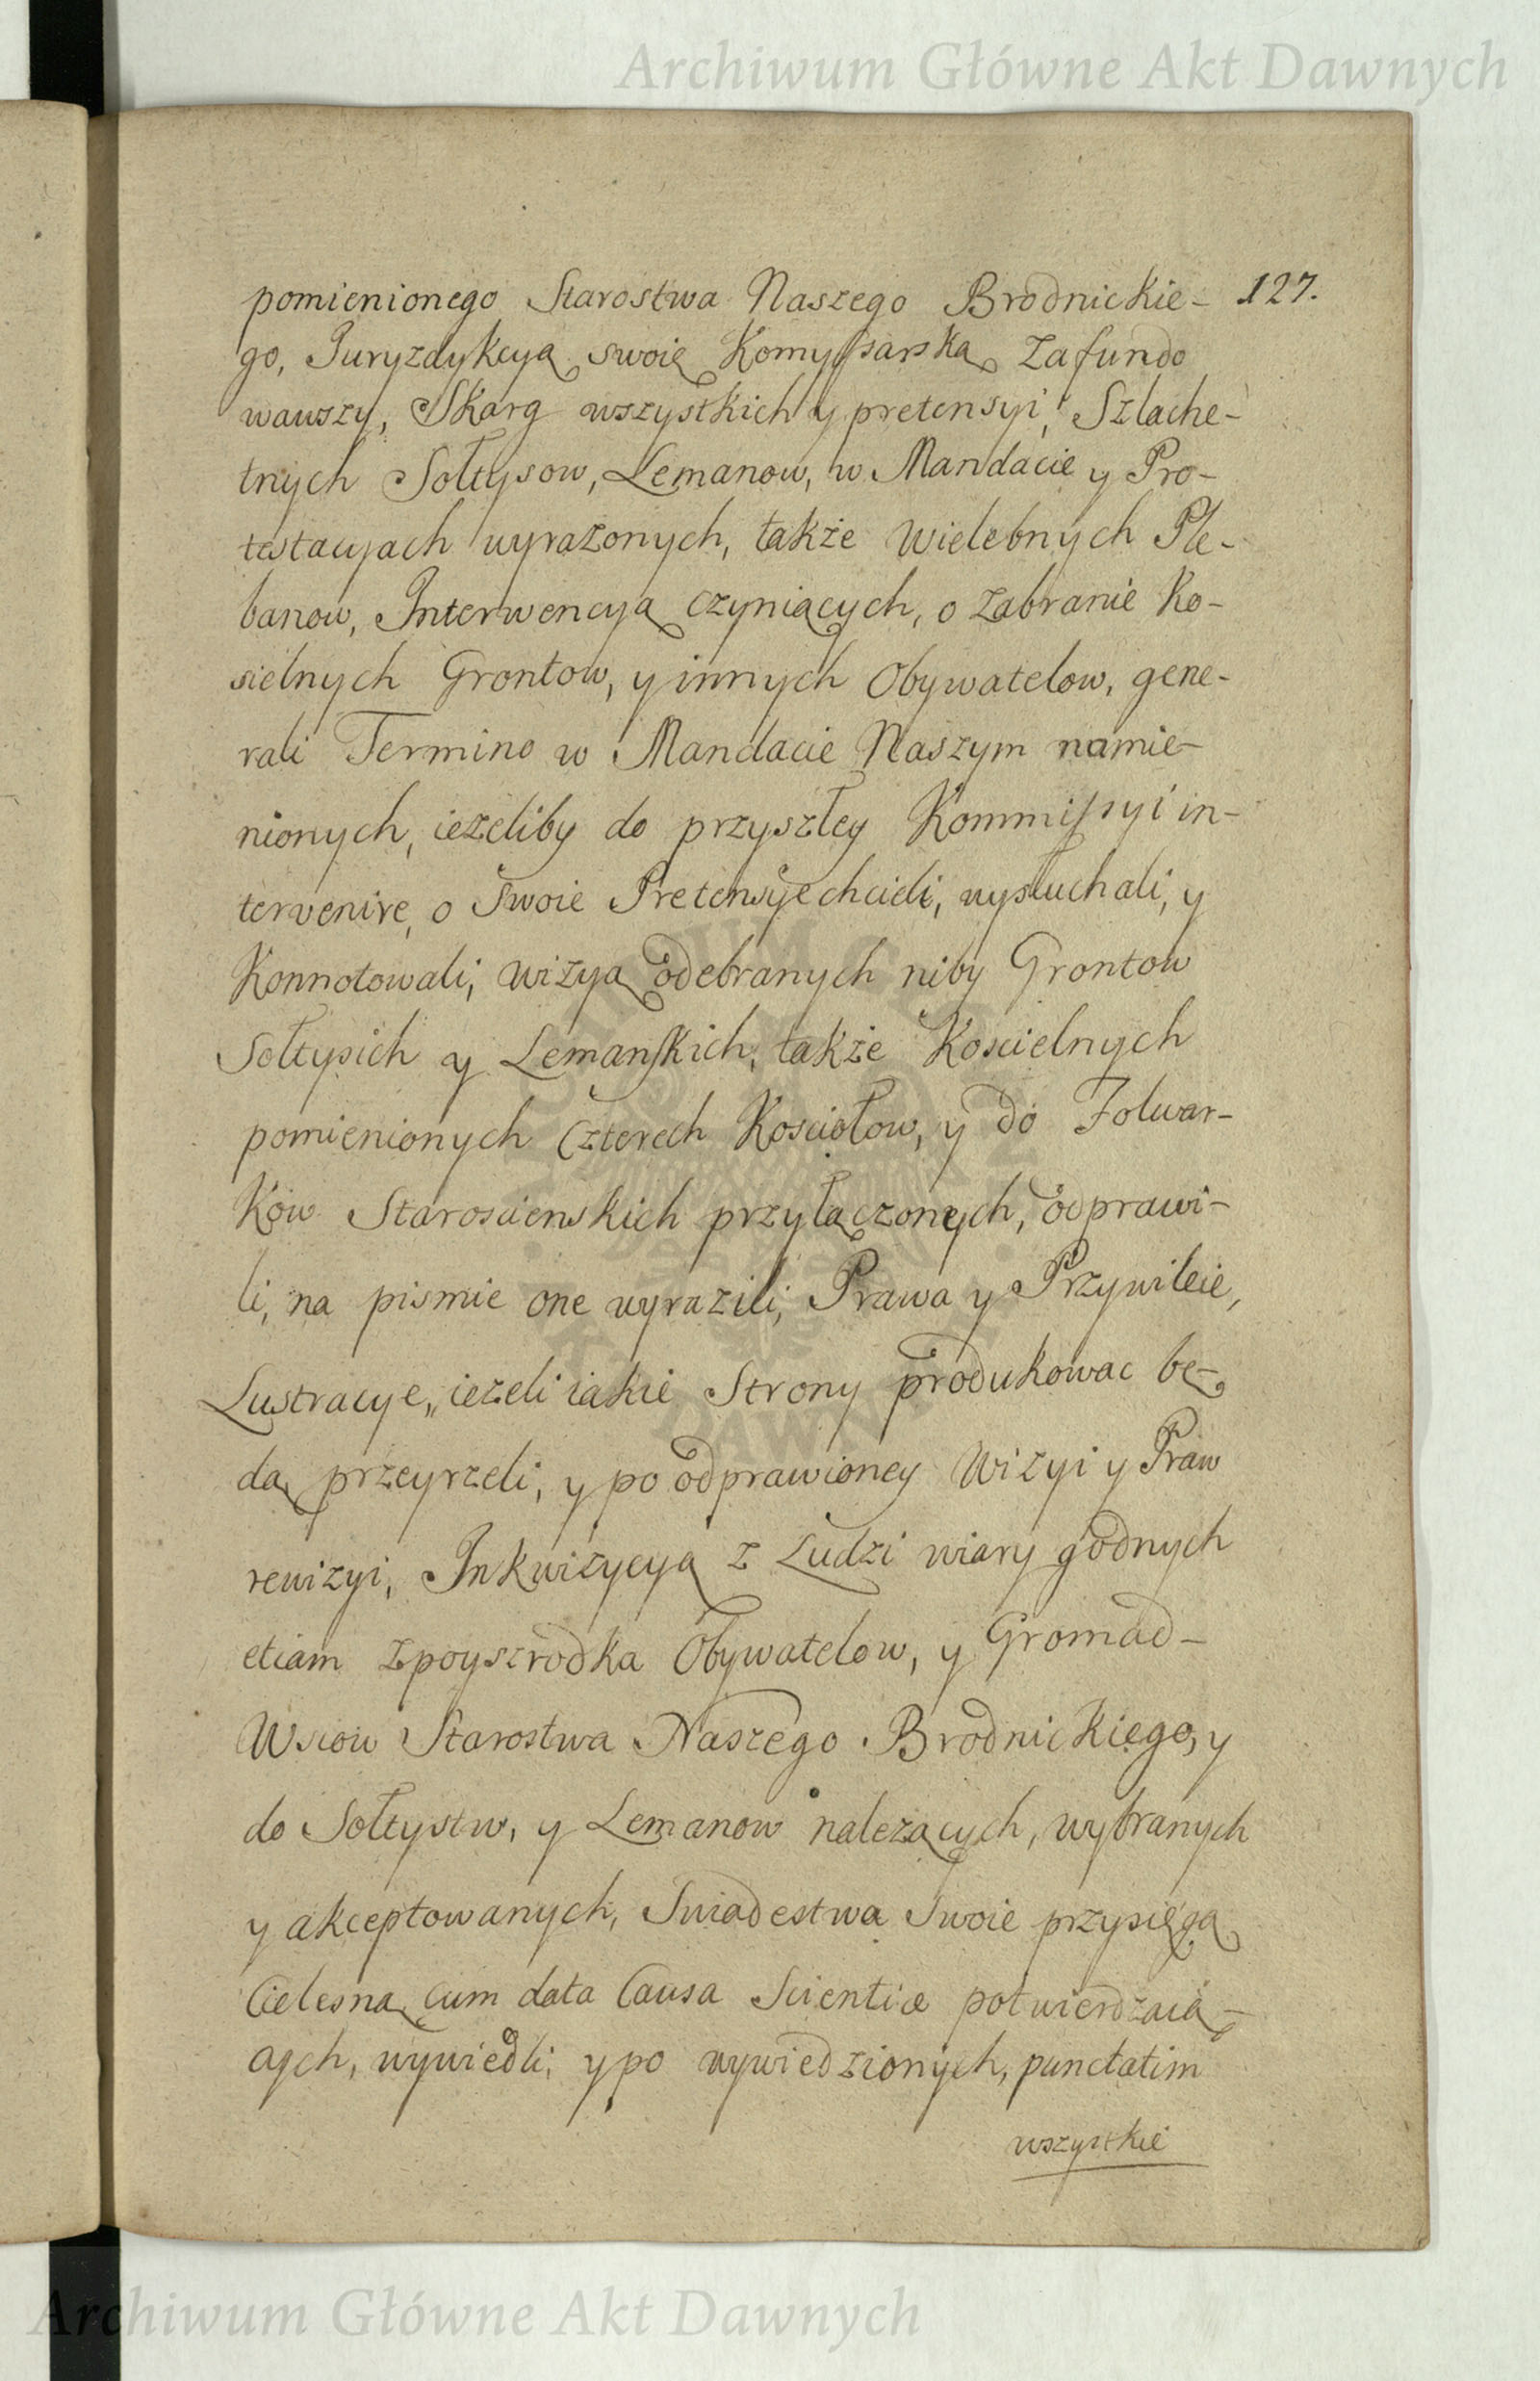 Archiwum Główne Akt Dawnych
pomienionego Starostwa Naszego Brodnickie- 127.
go, Juryzdykcyą swoię Komyssarską zafundo
wawszy, Skarg wszystkich y pretensyi, Szlache-
tnych Sołtysow, Lemanow, w Mandacie y Pro-
testacyach wyrażonych, także Wielebnych Ple-
banow, Interwencyą czyniących, o zabranie Ko-
sielnych Grontow, y innych Obywatelow, gene-
rali Termino w Mandacie Naszym namie-
nionych, ieżeliby do przyszłey Kommissyi in-
tervenire, o swoie Pretensye chcieli, wysłuchali, y
Konnotowali, wizyą odebranych niby Grontow
Sołtysich y Lemanskich, także Koscielnych
pomienionych Czterech Kosciołow, y do Folwar-
Kow Staroscienskich przyłączonych, odprawi-
li, na pismie one wyrazili, Prawa y Przywileie,
Lustracye, ieżeli iakie Strony produkowac bę-
dą przeyrzeli, y po odprawioney Wizyi y Praw
rewizyi, Inkwizycyą z Ludzi wiary godnych
etiam zpoyszrodka Obywatelow, y Gromad-
Wsiow Starostwa Naszego Brodnickiego, y
do Sołtystw, y Lemanow należących, wybranych
y akceptowanych, Swiadestwa Swoie przysięgą
Cielesną cum data Causa Scientiæ potwierdzaią-
cych, wywiedli; y po wywiedzionych, punctatim
wszystkie
Archiwum Główne Akt Dawnych